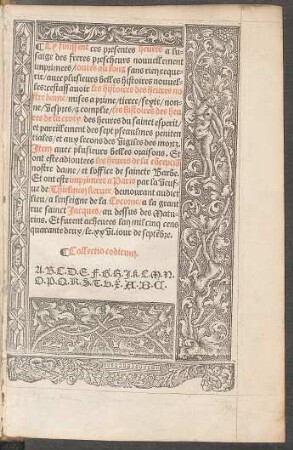 ¶Cy finissent ces presentes heures a lu-
saige des freres prescheurs nouuellement
imprimees / toutes au long sans rien reque-
rir / auec plusieurs belles histoires nouuel-
les: cestassauoir les histoires des heures no-
stre dame / mises a prime / tierce / sexte / non-
ne / Vespres / & complie / les histoires des heu-
res de la croix des heures du sainct esperit /
et pareillement des sept pseaulmes peniten-
tiales / et aux lecons des Vigiles des mors.
Item auec plusieurs belles oraisons. Et
ont este adioutees les heures de la cõceptiõ
nostre dame / et loffice de saincte Barbe.
Et ont este imprimees a Paris par la Veuf-
ue de Thielman Keruer / demourant audict
lieu / a lenseigne de la Licorne / a la grant
rue sainct Jacques / au dessus des Matu-
rins. Et furent acheuees lan mil cinq cens
quarante deux / le. xxVi. iour de septẽbre.
¶Collectio codicum.
A. B. C. D. E. F. G. H. J. K. L. M. N.
O. P. Q. R. S. T. V. X. A. B. C.